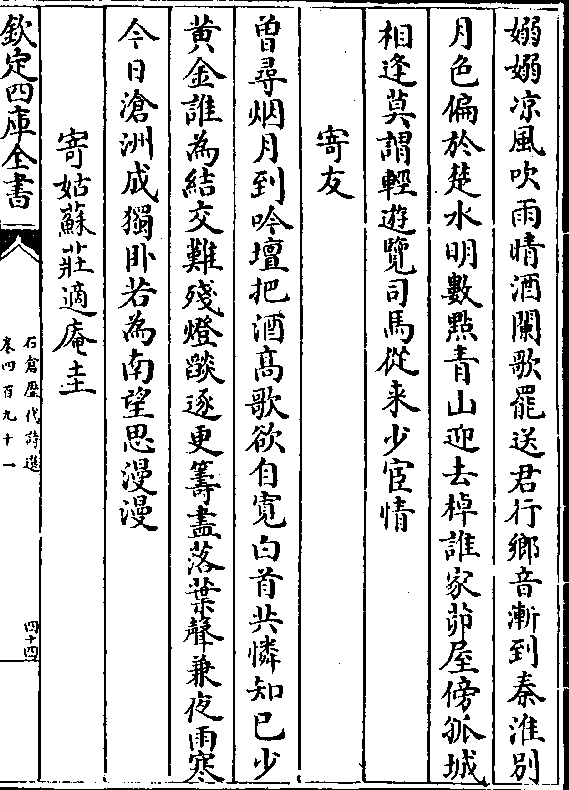 嫋嫋凉風吹雨晴酒闌歌罷送君行鄉音漸到秦淮別
月色偏於楚水明數點青山迎去棹誰家茆屋傍孤城
相逢莫謂輕遊覽司馬從来少宦情
寄友
曽尋烟月到吟壇把酒高歌欲自寛白首共憐知已少
黄金誰為結交難殘燈燄逐更籌盡落葉聲兼夜雨寒
今日滄洲成獨卧若為南望思漫漫
寄姑蘇莊適庵
欽定四庫全書
石倉歴代詩選
卷四百九十一
四十四